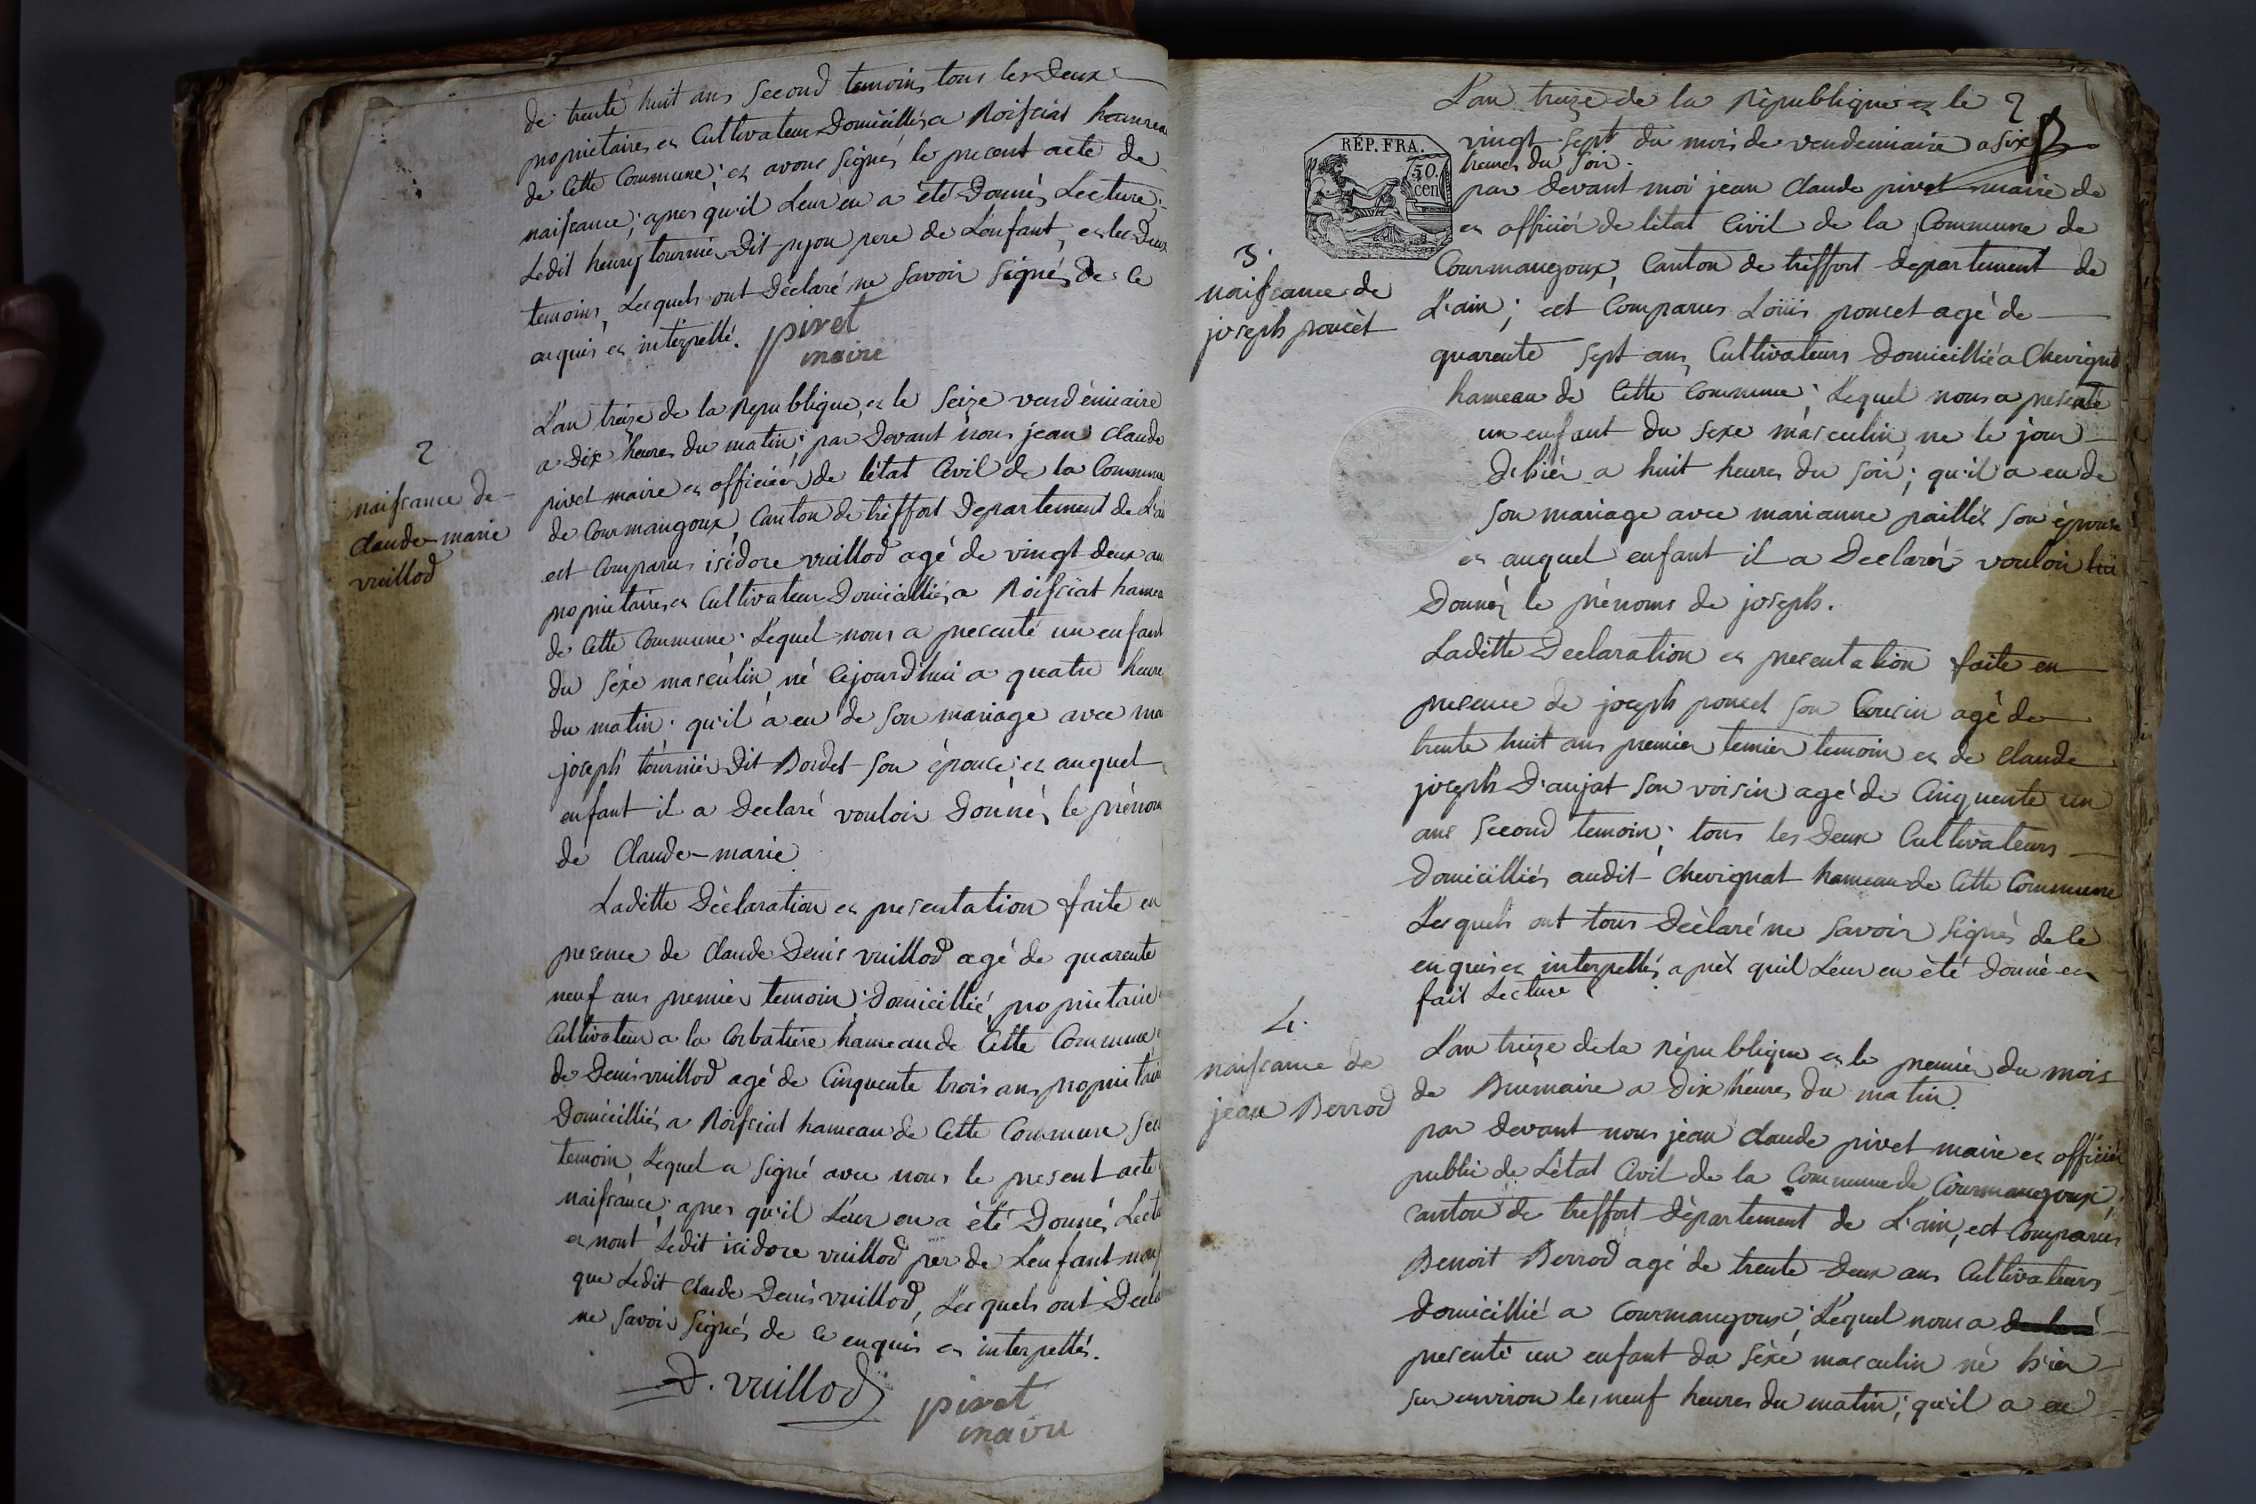 de trente huit ans second temoin, tous les deux
propriétaires et Cultivateur Domicilliés a Roissiat hameau
de Cette Commune; et avons signés le present acte de
naissance; apres qu'il Leur en a été Donnés Lecture;
Ledit henry tournier Dit pyon pere de L'enfant, et les Deux
temoins, Lesquels ont Déclaré ne savoir signés de ce
enquis et interpellé.
pivet
maire
2
naissance de
Claude-marie
vuillod
L'an treize de la republique, et le seize vendémiaire
a Dix heures du matin; par Devant nous jean Claude
pivet maire et officier de l'état Civil de la Commune
de Courmangoux, Canton de treffort Departement de L'ain
est Comparus isidore vuillod agé de vingt deux ans
propriétaire et Cultivateur Domicilliés a Roissiat hameau
de Cette Commune; Lequel nous a presenté un enfant
du séxe masculin, né Cejourd'hui a quatre heure
du matin; qu'il a eu de son mariage avec ma
joseph tournier Dit Bordet son épouse; et auquel
enfant il a Declaré vouloir Donnés le prénom
de Claude-marie
Laditte Déclaration et presentation faite en
presence de Claude Denis vuillod agé de quarente
neuf ans premier temoin; Domicillié, propriétaire
Cultivateur a la Corbatiere hameau de Cette Commune
de Denis vuillod agé de Cinquente trois ans propriétaire
Domicilliés a Roissiat hameau de Cette Commune sec
temoin Lequel a signé avec nous le present acte
naissance; apres qu'il Leur en a été Donnés Lectu
et nont Ledit isidore vuillod per de L'enfant non
que Ledit Claude Denis vuillod, Lesquels ont Decla
ne savoir signés de ce enquis et interpellés.
D. vuillod
pivet
maire
L'an treize de la République et le 2
vingt sept du mois de vendemiaire a six
heures du soir.
RÉP. FRA.
50.
cen
par devant moi jean Claude pivet maire de
et officier de l'état Civil de la Commune de
Courmangoux, Canton de treffort departement de
L'ain; est Comparus Loüis poncet agé de
3.
naissance de
joseph poncet
quarente sept ans, Cultivateurs domicillié a Chevignat
hameau de Cette Commune; Lequel nous a presenté
un enfant du sexe masculin, ne le jour
d'hier a huit heures du soir; qu'il a eu de
son mariage avec marianne paillet son épouse
et auquel enfant il a Declarés vouloir lui
Donnés le prénoms de joseph.
Laditte Declaration et presentation faite en
presence de joseph poncet son Cousin agé de
trente huit ans premier temier temoin et de Claude
joseph D'aujat son voisin agé de Cinquente un
ans second temoin; tous les Deux Cultivateurs
Domicilliés audit Chevignat hameau de Cette Commune
Lesquels ont tous Déclaré ne savoir signés de ce
enquis et interpellés, aprèt quil Leur en été donné et
fait Lecture
4.
naissance de
jean Berrod
L'an treize de la république et le premier du mois
de Brumaire a dix heures du matin.
par devant nous jean Claude pivet maire et officier
public de L'état Civil de la Commune de Courmangoux,
canton de treffort département de L'ain, est Comparus
Benoit Berrod agé de trente deux ans Cultivateurs
domicillié a Courmangoux; Lequel nous a declaré
presenté un enfant du séxe masculin né hier
sur environ les neuf heures du matin; qu'il a eu